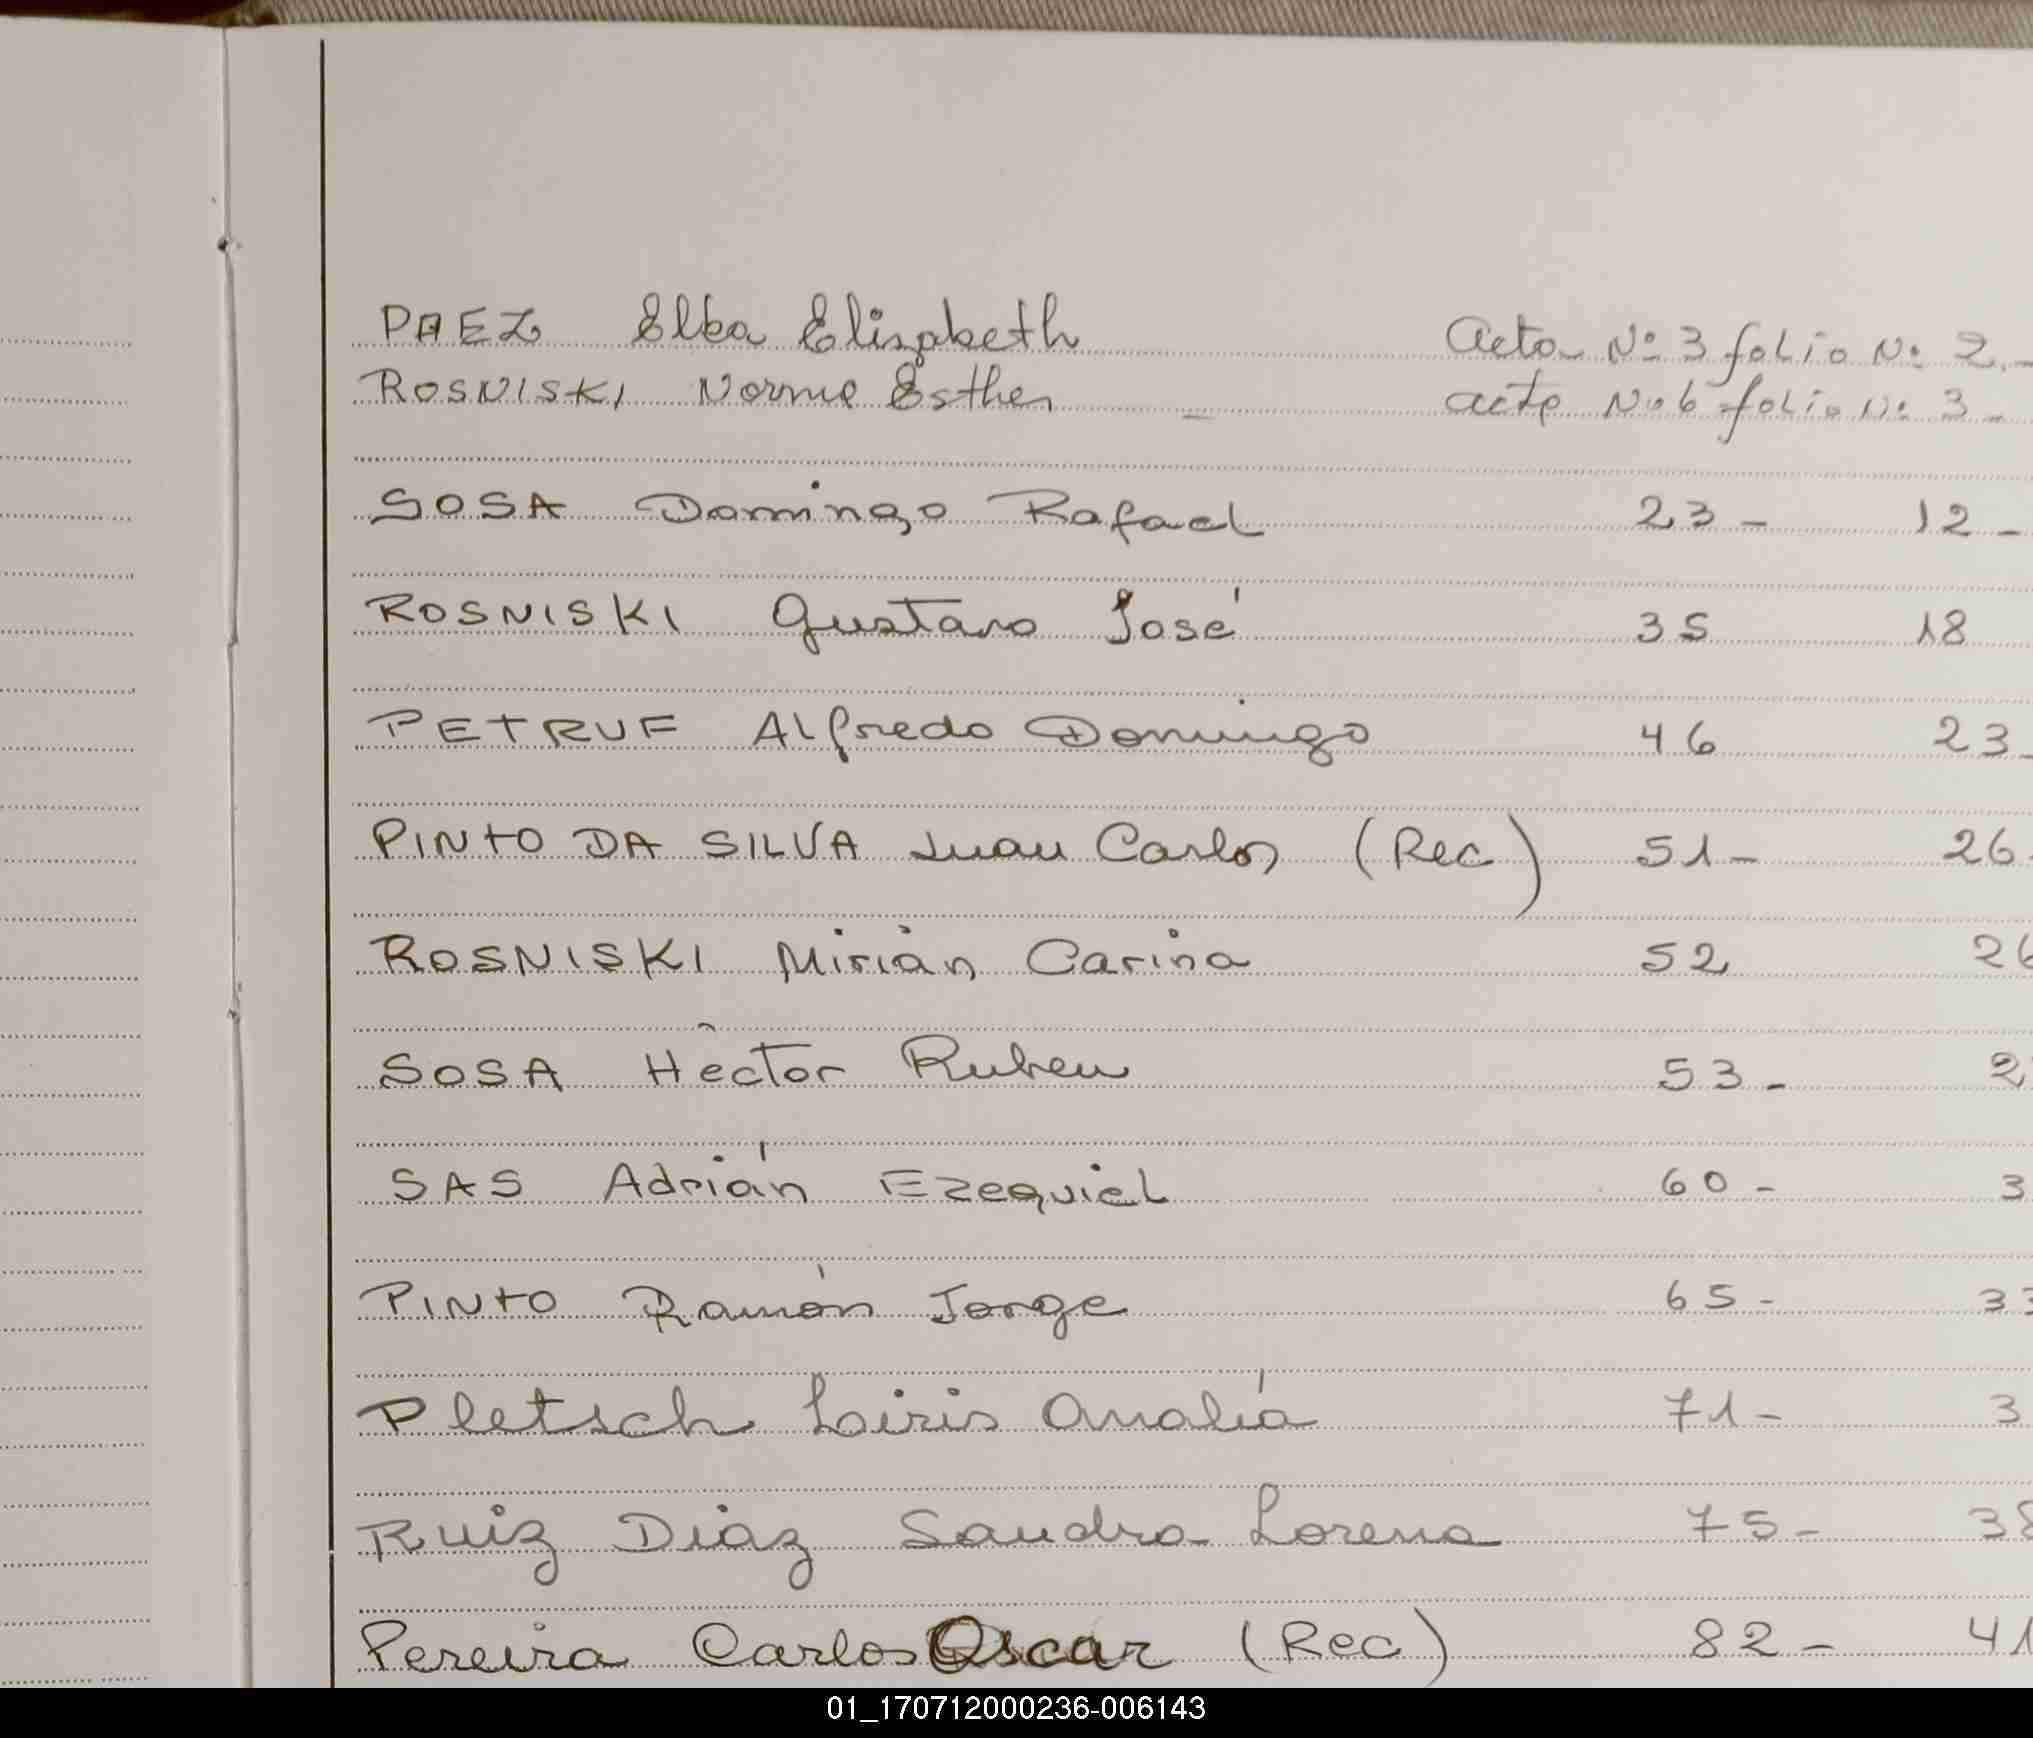 PAEZ Elba Elizabeth Acta Nº 3 folio Nº 2.-
ROSNISKI Norma Esther - acta Nº 6 folio Nº 3-
SOSA Domingo Rafael 23- 12-
ROSNISKI Gustavo José 35 18
PETRUF Alfredo Domingo 46 23-
PINTO DA SILVA Juan Carlos (Rec) 51- 26-
ROSNISKI Mirian Carina 52 26
SOSA Hèctor Ruben 53- 2
SAS Adrián Ezequiel 60- 3
PINTO Ramón Jorge 65- 33
Pletsch Loiris Analía 71- 3
Ruiz Diaz Sandra Lorena 75- 38
Pereira Carlos Oscar (Rec) 82- 41
01_170712000236-006143